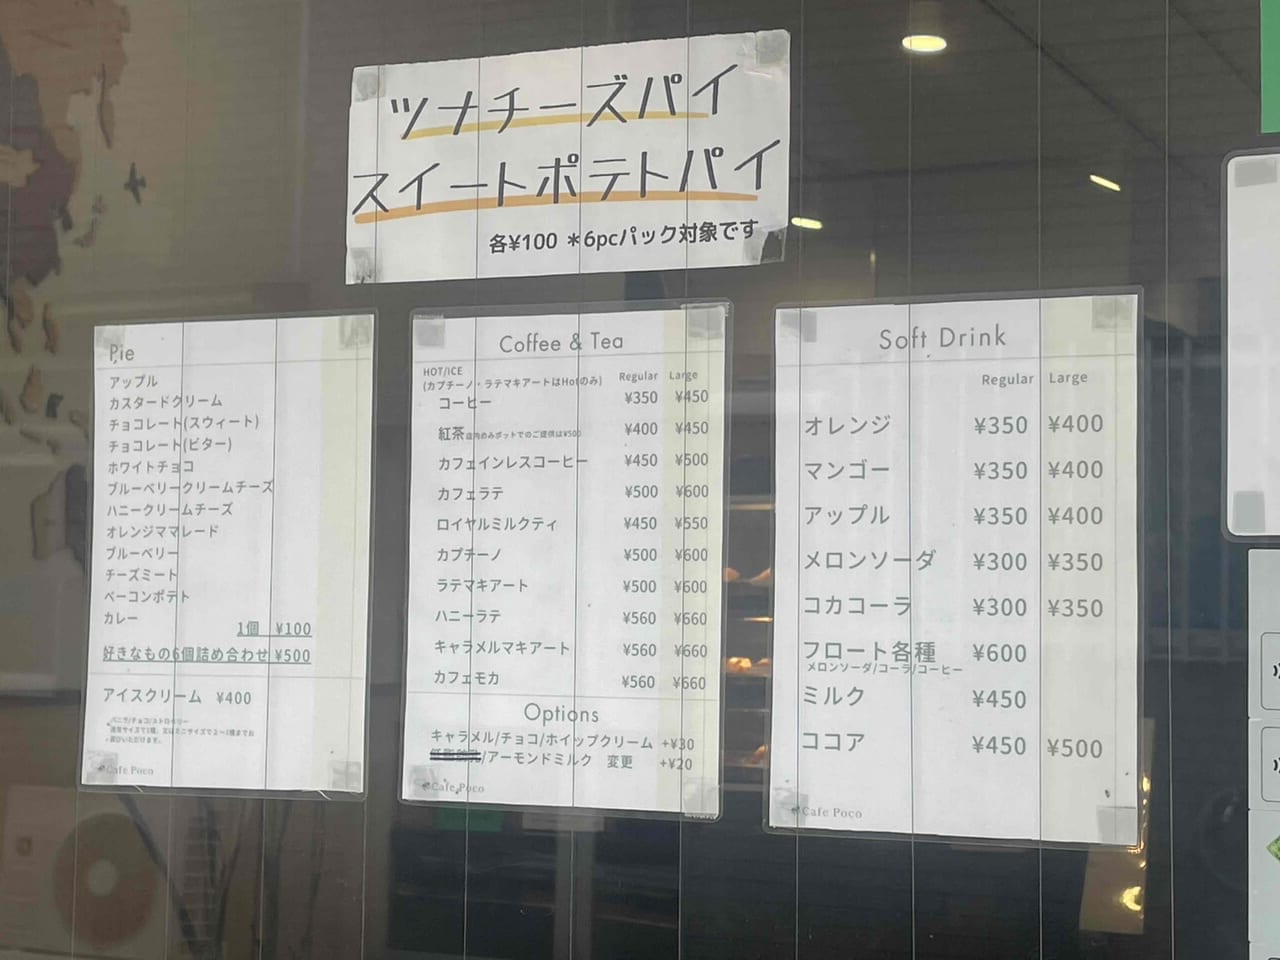 ツナチーズパイ
スイートポテトパイ
各¥100 *6pcパック対象です
Pie
アップル
カスタードクリーム
チョコレート(スウィート)
チョコレート(ビター)
ホワイトチョコ
ブルーベリークリームチーズ
ハニークリームチーズ
オレンジママレード
ブルーベリー
チーズミート
ベーコンポテト
カレー
1個 ¥100
好きなもの6個詰め合わせ ¥500
アイスクリーム ¥400
バニラ/チョコ/ストロベリー
Cafe Poco
Coffee & Tea
HOT/ICE
(カプチーノ・ラテマキアートはHotのみ) Regular Large
コーヒー ¥350 ¥450
紅茶 店内のみポットでのご提供は¥500 ¥400 ¥450
カフェインレスコーヒー ¥450 ¥500
カフェラテ ¥500 ¥600
ロイヤルミルクティ ¥450 ¥550
カプチーノ ¥500 ¥600
ラテマキアート ¥500 ¥600
ハニーラテ ¥560 ¥660
キャラメルマキアート ¥560 ¥660
カフェモカ ¥560 ¥660
Options
キャラメル/チョコ/ホイップクリーム +¥30
/アーモンドミルク 変更 +¥20
Cafe Poco
Soft Drink
Regular Large
オレンジ ¥350 ¥400
マンゴー ¥350 ¥400
アップル ¥350 ¥400
メロンソーダ ¥300 ¥350
コカコーラ ¥300 ¥350
フロート各種 ¥600
メロンソーダ/コーラ/コーヒー
ミルク ¥450
ココア ¥450 ¥500
Cafe Poco